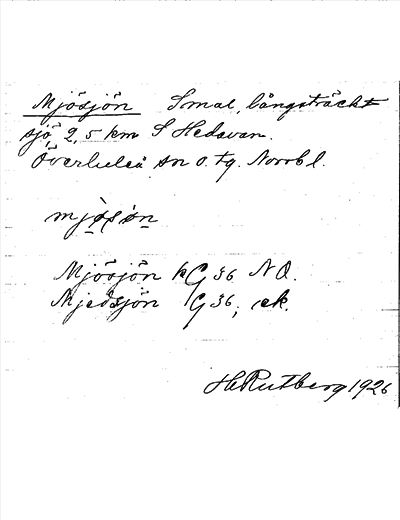 Mjösjön Smal, långsträckt
sjö 2,5 km S Hedavan.
Överluleå sn o. tg. Norrbl.
mjǿsǿn
Mjösjön kG 36 NO.
Mjedsjön G 36, ek.
H Rutberg 1926